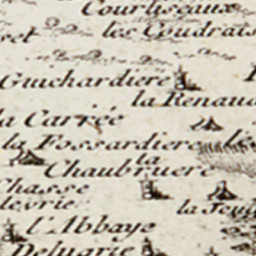 Courtiseaux
les Coudrais
Guichardiere
la Renaud
la Carrée
la Fossardiere
la
Chaubruere
Chasse
levrie
l'Abbaye
Peluarie